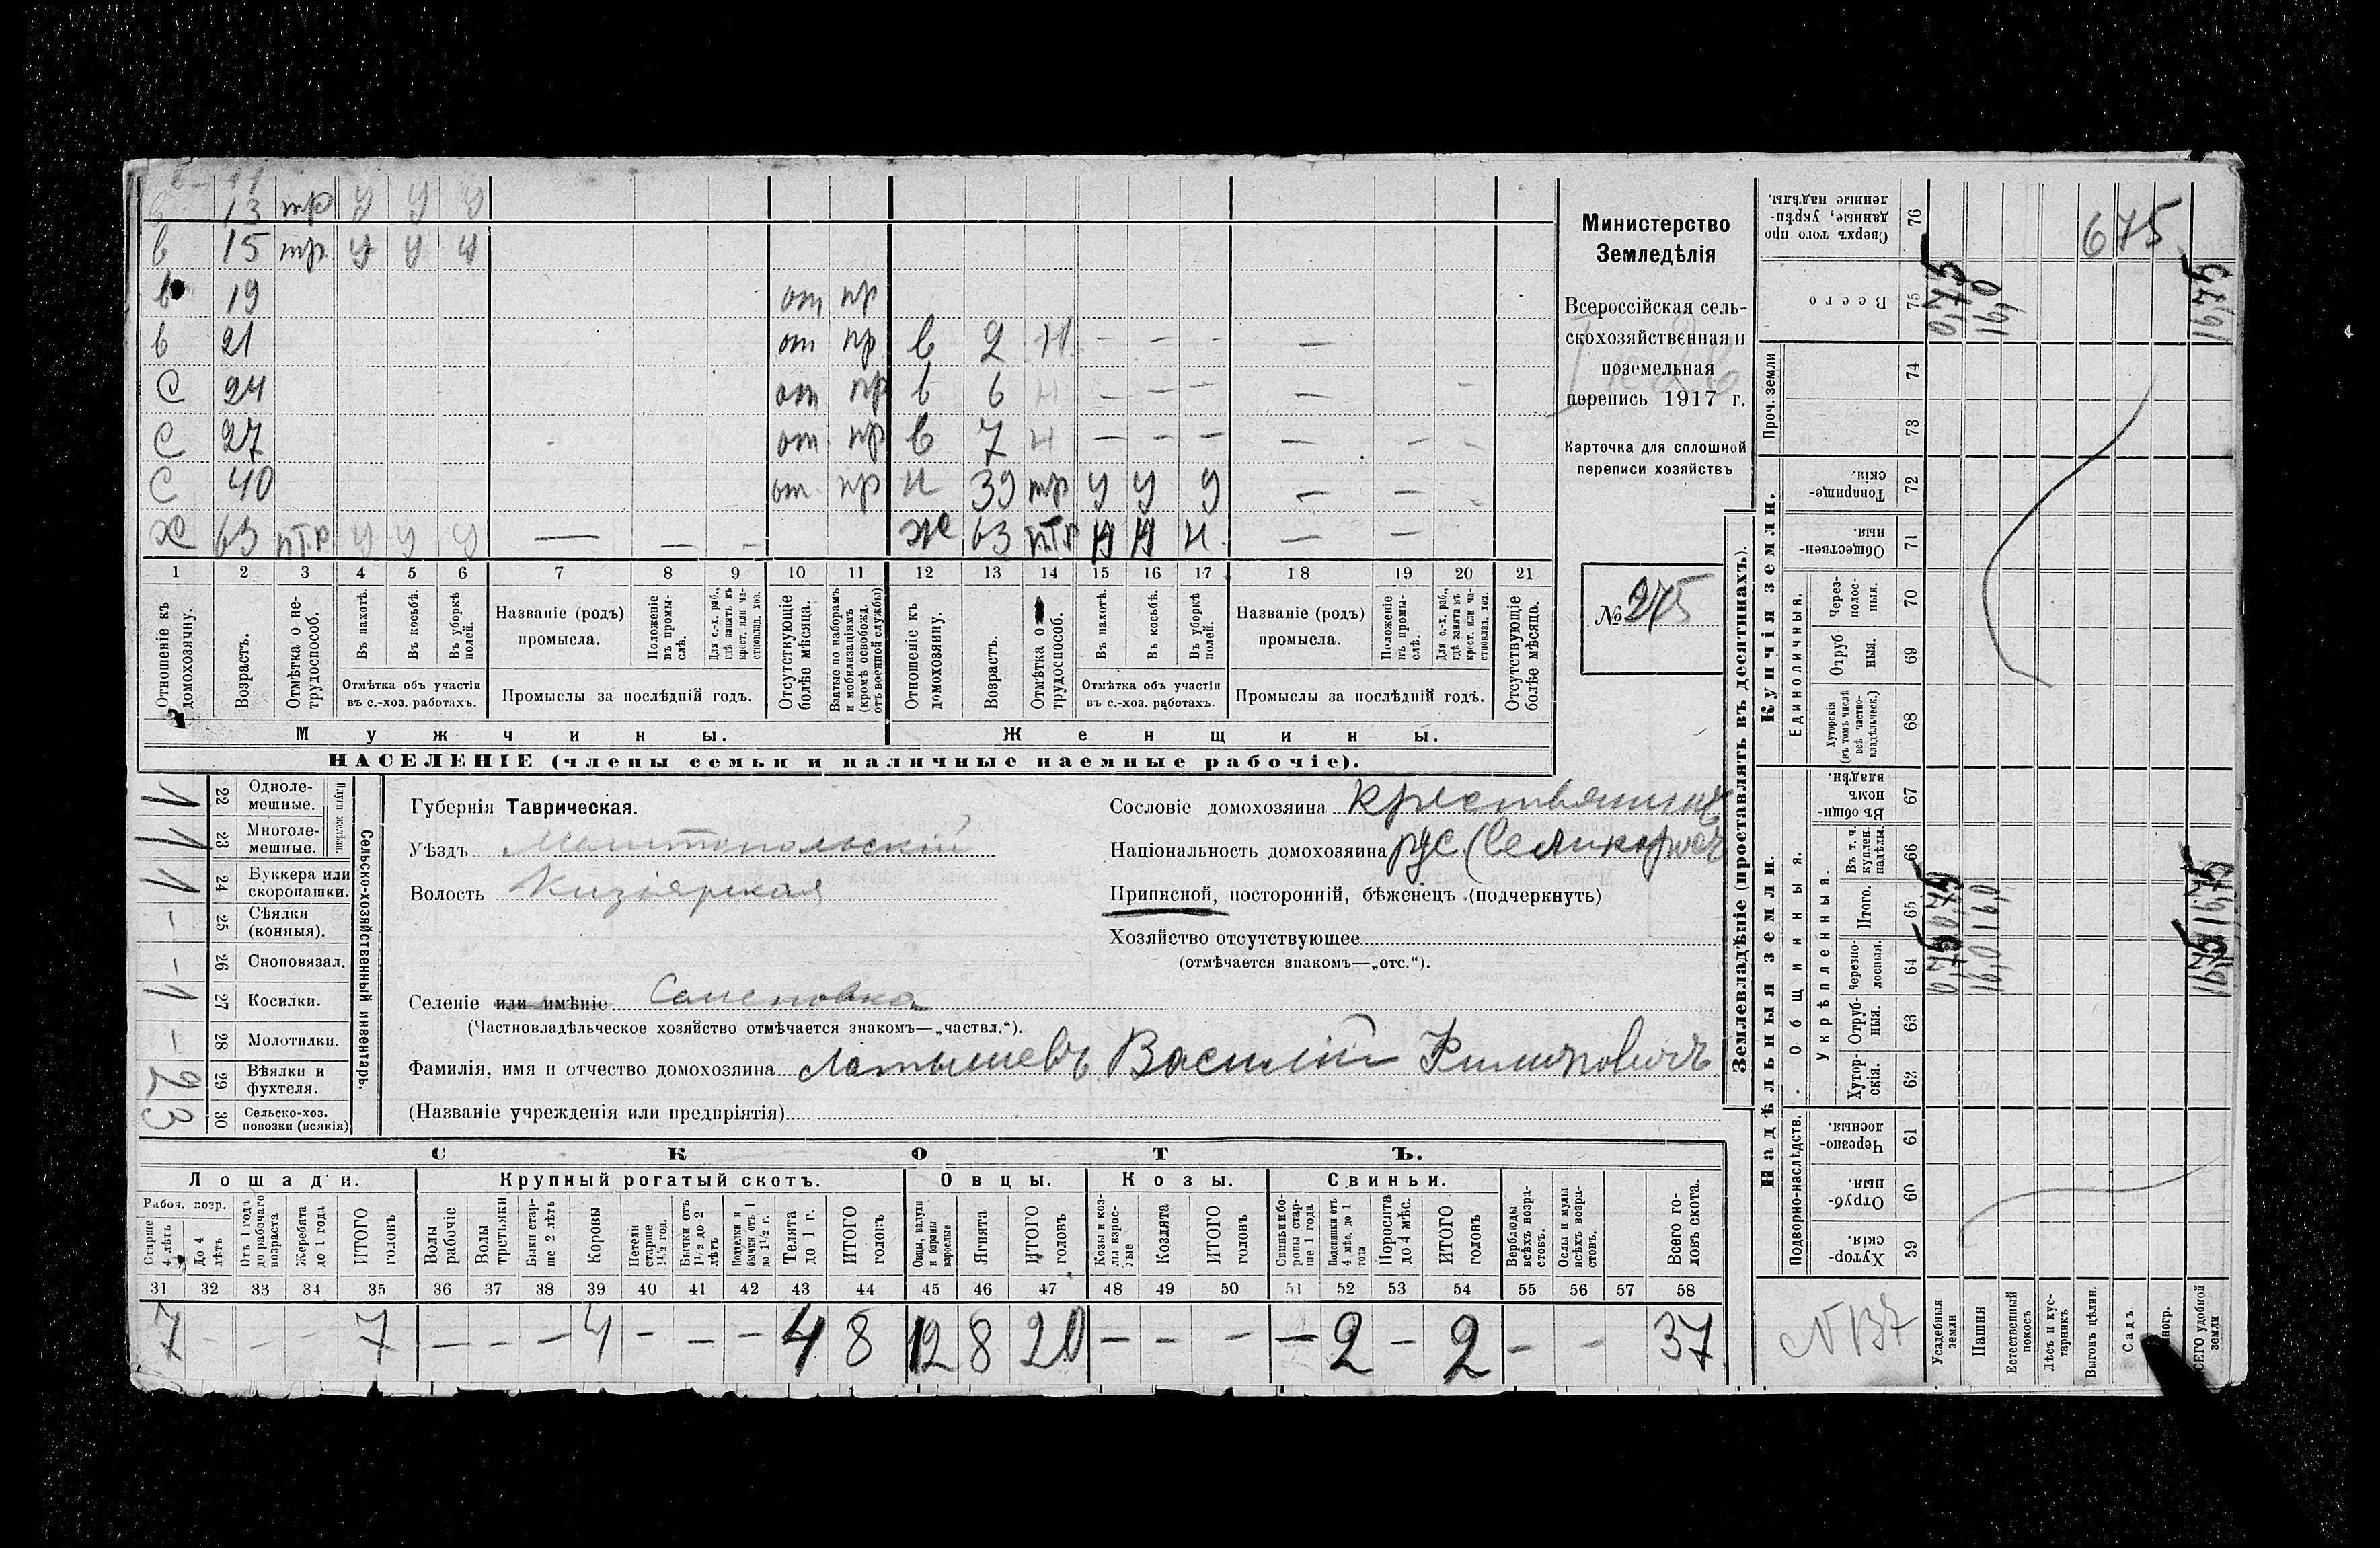 13 тр у у у
в 15 тр у у у
в 19 от пр
в 21 от пр в 2 н - - - —
С 24 от пр в 6 н - - - — -
С 27 от пр в 7 н — - — — - -
С 40 от пр н 39 тр у у у — — -
х 63 п.т.р у у у — — — ж 63 п.т.р н н н — —
1 2 3 4 5 6 7 8 9 10 11 12 13 14 15 16 17 18 19 20 21
Отношеніе къ домохозяину.
Возрастъ.
Отмѣтка о не-
трудоспособ.
Въ пахотѣ.
Въ косьбѣ.
Въ уборкѣ
полей.
Отмѣтка объ участіи
въ с.-хоз. работахъ.
Названіе (родъ)
промысла.
Положеніе
въ промы-
слѣ.
Для с.-х. раб.,
гдѣ занятъ въ
крест. или ча-
стновлад. хоз.
Промыслы за послѣдній годъ.
Отсутствующіе
болѣе мѣсяца.
Взятые по наборамъ
и мобилизаціямъ
(кромѣ освобожд.
отъ военной службы)
Отношеніе къ
домохозяину.
Возрастъ.
Отмѣтка о
трудоспособ.
Въ пахотѣ.
Въ косьбѣ.
Въ уборкѣ
полей.
Отмѣтка объ участіи
въ с.-хоз. работахъ.
Названіе (родъ)
промысла.
Положеніе
въ промы-
слѣ.
Для с.-х. раб.,
гдѣ занята въ
крест. или ча-
стновлад. хоз.
Промыслы за послѣдній годъ.
Отсутствующіе
болѣе мѣсяца.
Мужчины.
Женщины.
НАСЕЛЕНІЕ (члены семьи и наличные наемные рабочіе).
Министерство
Земледѣлія
Всероссійская сель-
скохозяйственная и
поземельная
перепись 1917 г.
Карточка для сплошной
переписи хозяйствъ
№ 275
Сельско-хозяйственный инвентарь.
Плуги желѣзн.
1 22 Одноле-
мешные.
1 23 Многоле-
мешные.
1 24 Буккера или
скоропашки.
- 25 Сѣялки
(конныя).
- 26 Сноповязал.
1 27 Косилки.
- 28 Молотилки.
2 29 Вѣялки и
фухтеля.
3 30 Сельско-хоз.
повозки (всякія)
Губернія Таврическая.
Уѣздъ Мелитопольскій
Волость Кизіярская
Сословіе домохозяина Крестьянинъ
Національность домохозяина рус (великорос
Приписной, посторонній, бѣженецъ (подчеркнуть)
Хозяйство отсутствующее
(отмѣчается знакомъ—„отс.“).
Селеніе или имѣніе Семеновка
(Частновладѣльческое хозяйство отмѣчается знакомъ—„частвл.“).
Фамилія, имя и отчество домохозяина Латышевъ Василій Филиповичъ
(Названіе учрежденія или предпріятія)
СКОТЪ.
Лошади. Крупный рогатый скотъ. Овцы. Козы. Свиньи.
Рабоч. возр.
Старше
4 лѣтъ
До 4
лѣтъ
Отъ 1 года
до рабочаго
возраста
Жеребята
до 1 года
ИТОГО
головъ
Волы
рабочіе
Волы
третьяки
Быки стар-
ше 2 лѣтъ
Коровы
Нетели
старше
1½ год.
Бычки отъ
1½ до 2
лѣтъ
Подтелки и
бычки отъ 1
до 1½ г.
Телята
до 1 г.
ИТОГО
головъ
Овцы, валухи
и бараны
взрослые
Ягнята
ИТОГО
головъ
Козы и коз-
лы взрос-
лые
Козлята
ИТОГО
головъ
Свиньи и бо-
ровы стар-
ше 1 года
Подсвинки отъ
4 мѣс. до 1
года
Поросята
до 4 мѣс.
ИТОГО
головъ
Верблюды
всѣхъ возра-
стовъ.
Ослы и мулы
всѣхъ возра-
стовъ.
Всего го-
ловъ скота.
31 32 33 34 35 36 37 38 39 40 41 42 43 44 45 46 47 48 49 50 51 52 53 54 55 56 57 58
7 - - - 7 — — — 4 - — — 4 8 12 8 20 — - - — 2 - 2 - - 37
Землевладѣніе (проставлять въ десятинахъ).
Надѣльныя земли.
Купчія земли.
Проч. земли
Подворно-наслѣдств.
Общинныя.
Укрѣпленныя.
Единоличныя.
76 Сверхъ того про
данные, укрѣп-
ленные надѣлы.
75 Всего
74
73
72 Товарище-
скія.
71 Обществен-
ныя.
70 Через-
полос-
ныя.
69 Отруб
ныя.
68 Хуторскія
(въ томъ числѣ
всѣ частно-
владѣльческ.)
67 Въ общи-
номъ
владѣн.
66 Въ т. ч.
куплен.
надѣлы.
65 Итого.
64 Черезпо-
лосныя.
63 Отруб-
ныя.
62 Хутор-
скія.
61 Черезпо-
лосныя.
60 Отруб-
ныя.
59 Хутор-
скія.
675
Усадебная
земли
Пашня
Естественный
покосъ
Лѣсъ и кус-
тарникъ
Выгонъ цѣлин.
Садъ
ногр.
СЕГО удобной
земли